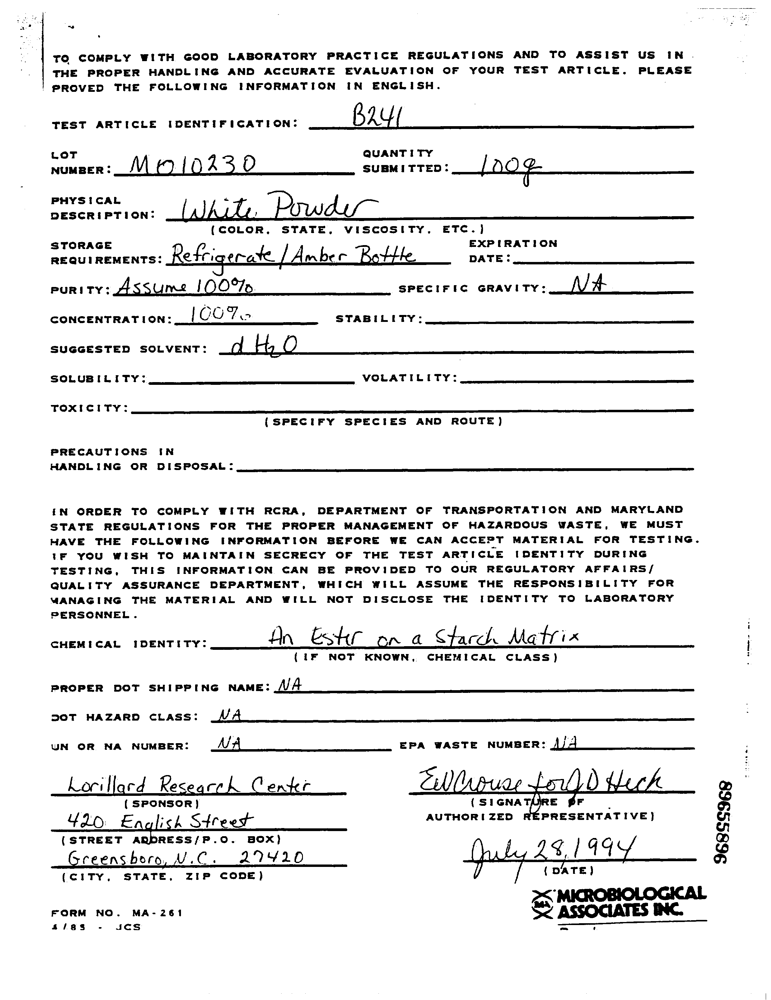 TO COMPLY WITH GOOD LABORATORY PRACTICE REGULATIONS AND TO ASSIST US IN
THE PROPER HANDLING AND ACCURATE EVALUATION OF YOUR TEST ARTICLE. PLEASE
PROVED THE FOLLOWING INFORMATION IN ENGLISH.
TEST ARTICLE IDENTIFICATION: B241
LOT
NUMBER: M010230
QUANTITY
SUBMITTED: 100g
PHYSICAL
DESCRIPTION: White Powder
(COLOR, STATE, VISCOSITY, ETC.)
STORAGE
REQUIREMENTS: Refrigerate / Amber Bottle
EXPIRATION
DATE:
PURITY: Assume 100% SPECIFIC GRAVITY: NA
CONCENTRATION: 100% STABILITY:
SUGGESTED SOLVENT: d H2O
SOLUBILITY: VOLATILITY:
TOXICITY:
(SPECIFY SPECIES AND ROUTE)
PRECAUTIONS IN
HANDLING OR DISPOSAL:
IN ORDER TO COMPLY WITH RCRA, DEPARTMENT OF TRANSPORTATION AND MARYLAND
STATE REGULATIONS FOR THE PROPER MANAGEMENT OF HAZARDOUS WASTE, WE MUST
HAVE THE FOLLOWING INFORMATION BEFORE WE CAN ACCEPT MATERIAL FOR TESTING.
IF YOU WISH TO MAINTAIN SECRECY OF THE TEST ARTICLE IDENTITY DURING
TESTING, THIS INFORMATION CAN BE PROVIDED TO OUR REGULATORY AFFAIRS/
QUALITY ASSURANCE DEPARTMENT, WHICH WILL ASSUME THE RESPONSIBILITY FOR
MANAGING THE MATERIAL AND WILL NOT DISCLOSE THE IDENTITY TO LABORATORY
PERSONNEL.
CHEMICAL IDENTITY: An Ester on a Starch Matrix
(IF NOT KNOWN, CHEMICAL CLASS)
PROPER DOT SHIPPING NAME: NA
DOT HAZARD CLASS: NA
UN OR NA NUMBER: NA EPA WASTE NUMBER: NA
Lorillard Research Center
(SPONSOR)
420 English Street
(STREET ADDRESS/P.O. BOX)
Greensboro, N.C. 27420
(CITY, STATE, ZIP CODE)
for JD Heck
(SIGNATURE OF
AUTHORIZED REPRESENTATIVE)
July 28, 1994
(DATE)
89655896
MA
MICROBIOLOGICAL
ASSOCIATES INC.
FORM NO. MA-261
4/85 - JCS